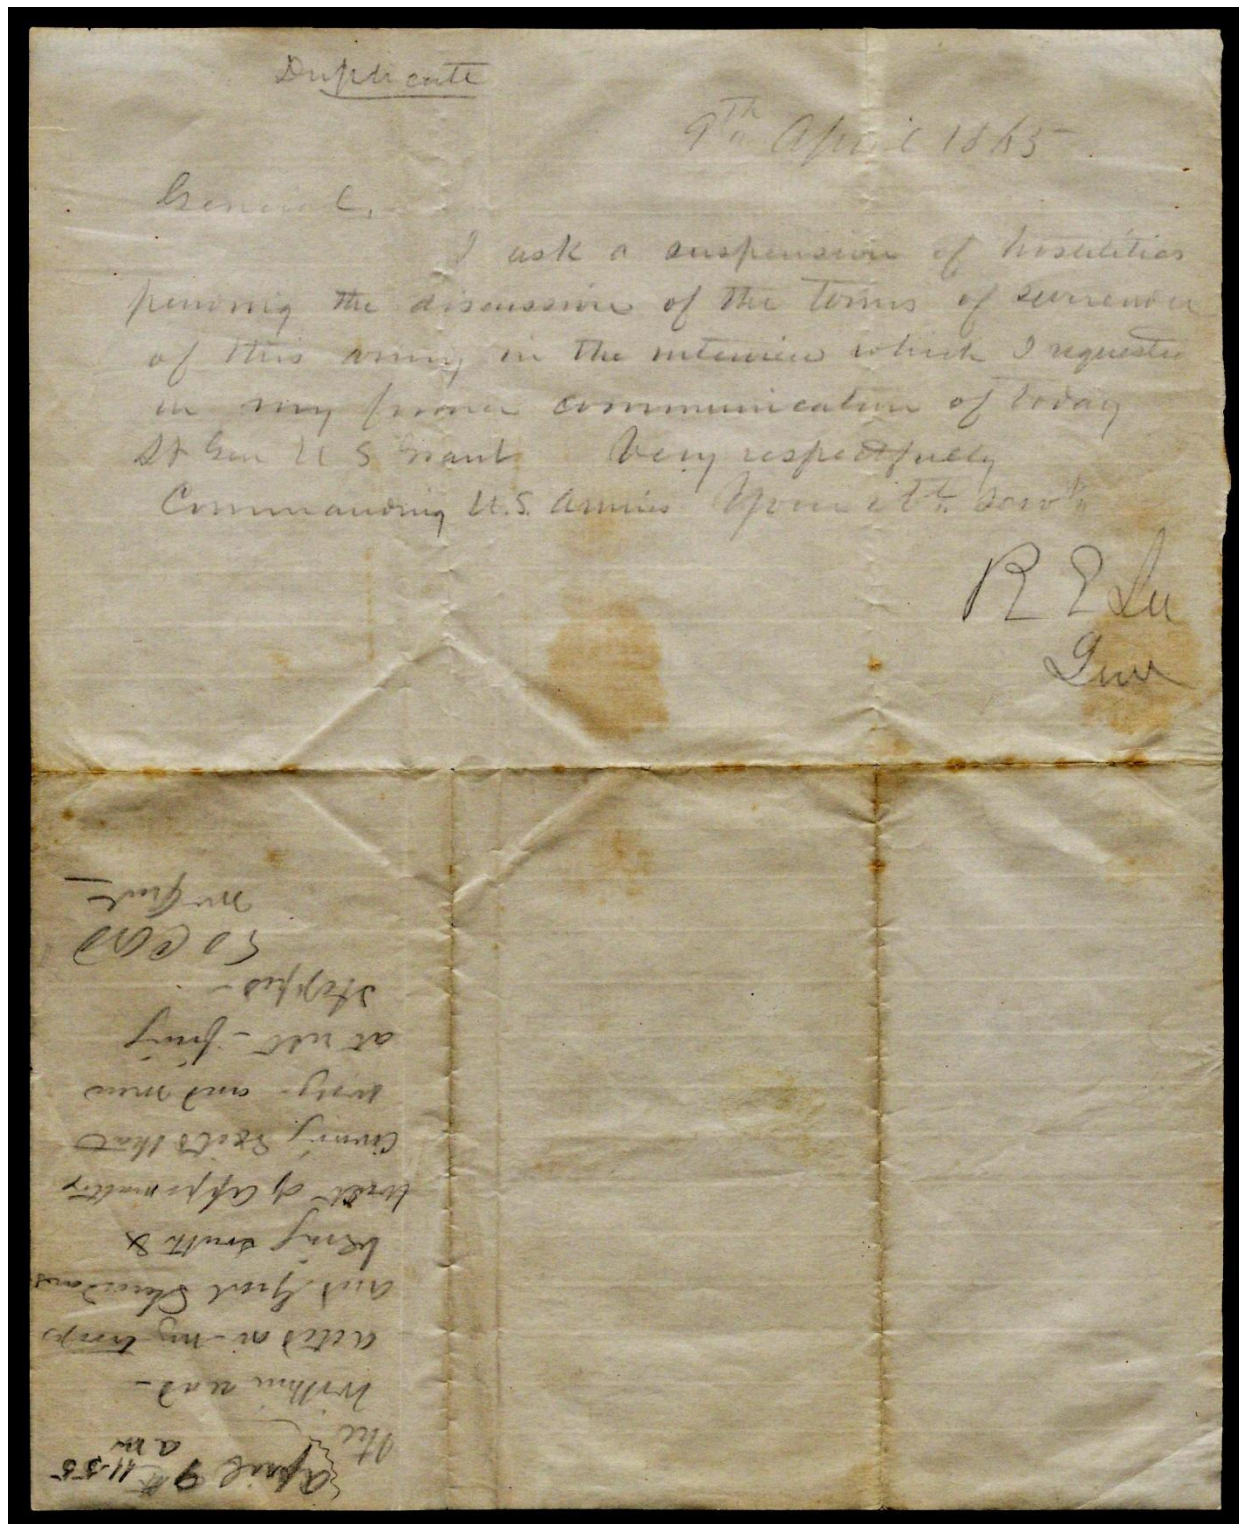 Duplicate
9th April 1865
General,
I ask a suspension of hostilities
pending the discussion of the terms of surrender
of this army in the interview which I requested
in my former communication of today
Lt Gen U S Grant Very respectfully
Commanding U.S. Armies Your obt. servt
R E Lee
Genl
April 9th 11.55
a m
The
within read -
acted on - my troops
and Genl Sheridans
being south &
West of Appomattox
- and men
at rest - firing
stopped -
E O C Ord